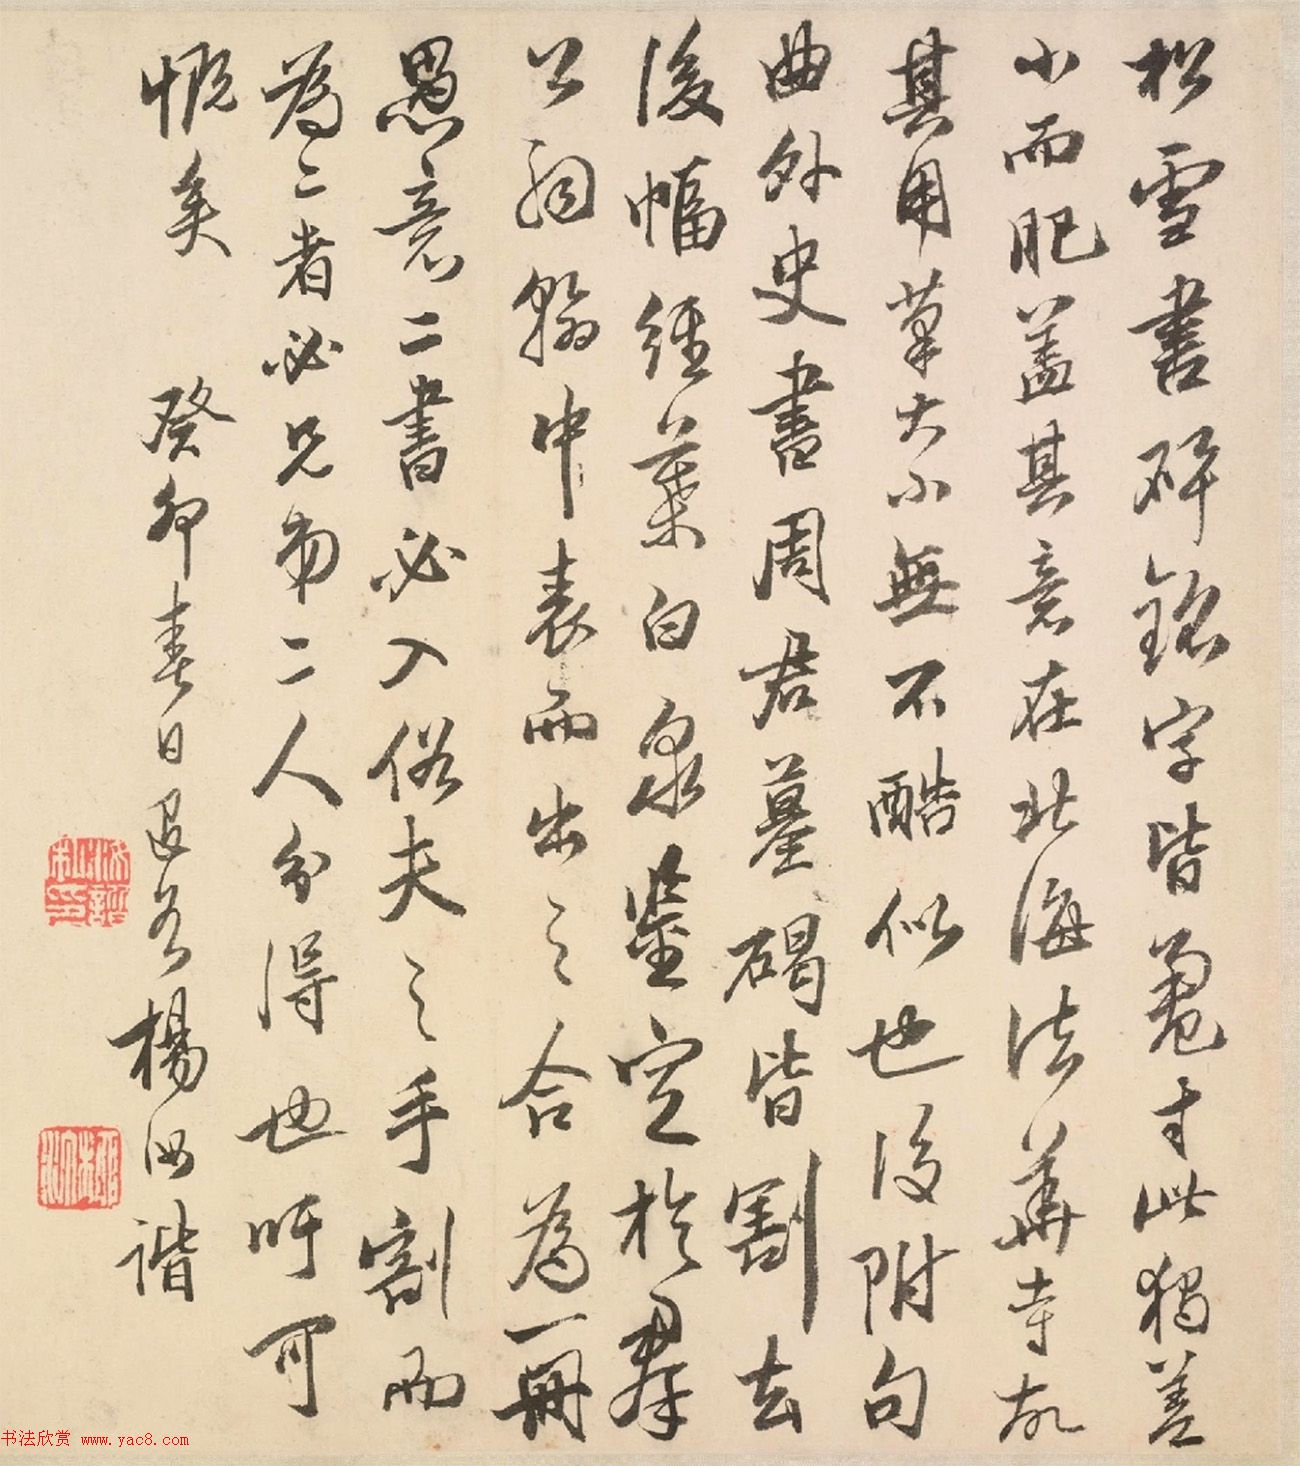 松雪書碑銘字皆逾寸此獨差
小而肥蓋其意在北海法華寺故
其用筆大小無不酷似也後附句
曲外史書周君墓碣皆割去
後幅經葉白泉鑒定於群
公翰中表而出之合為一冊
愚意二書必入俗夫之手割而
為二者必兄弟二人分得也吁可
慨矣 癸卯春日退谷楊汝諧
书法欣赏 www.yac8.com